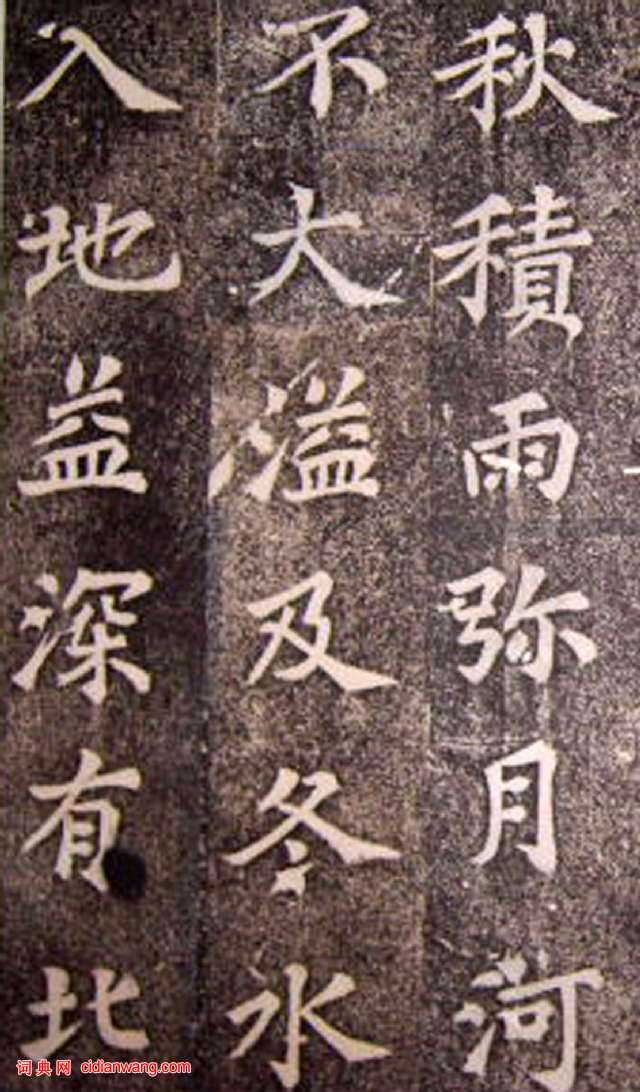 秋積雨弥月河
不大溢及冬水
入地益深有北
词典网 cidianwang.com